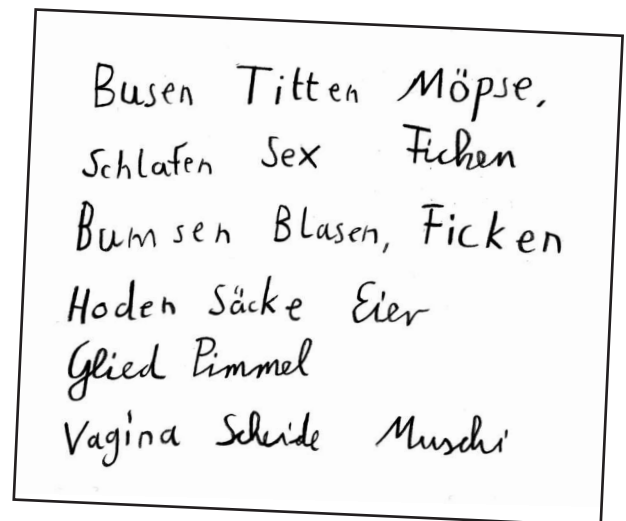 Busen Titten Möpse,
Schlafen Sex Ficken
Bumsen Blasen, Ficken
Hoden Säcke Eier
Glied Pimmel
Vagina Scheide Muschi